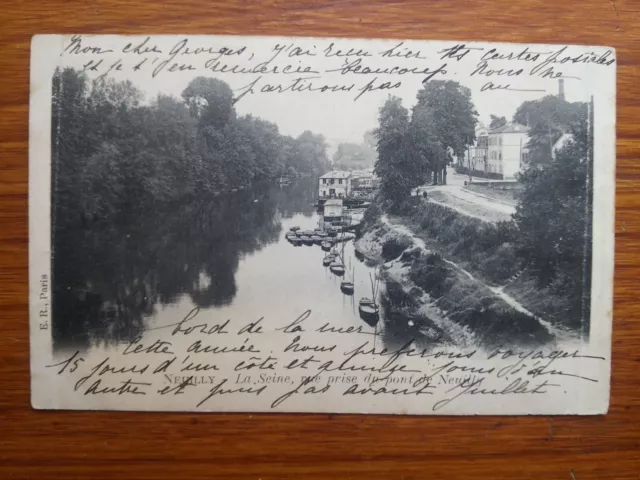 Mon cher Georges, j'ai recu hier tes cartes postales
et je t'en remercie beaucoup. Nous ne
partirons pas au
bord de la mer
cette année. Nous préferons voyager
15 jours d'un côté et quinze jours d'un
autre et puis pas avant Juillet.
NEUILLY - La Seine, vue prise du pont de Neuilly
E. R., Paris